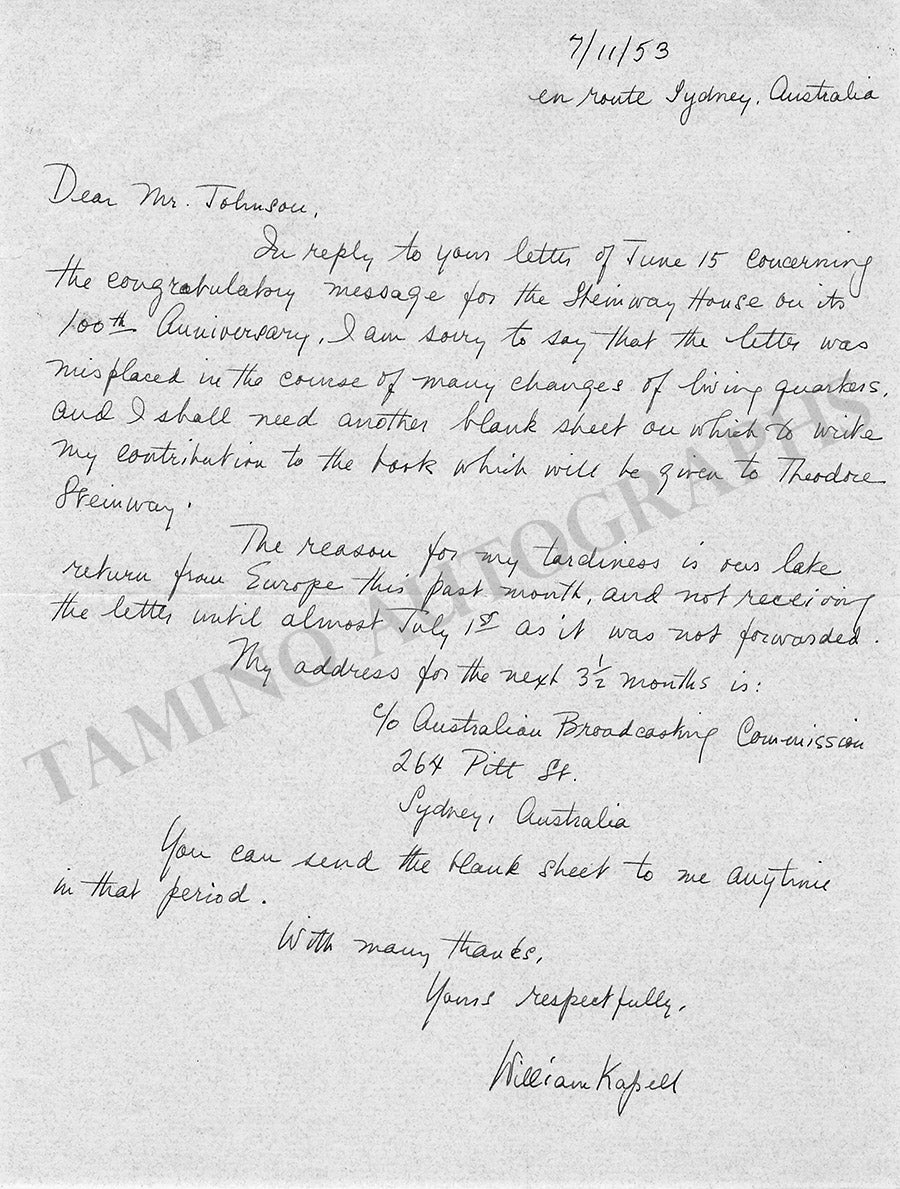 7/11/53
en route Sydney, Australia
Dear Mr. Johnson,
In reply to your letter of June 15 concerning
the congratulatory message for the Steinway House on its
100th Anniversary, I am sorry to say that the letter was
misplaced in the course of many changes of living quarters,
and I shall need another blank sheet on which to write
my contribution to the book which will be given to Theodore
Steinway.
The reason for my tardiness is our late
return from Europe this past month, and not receiving
the letter until almost July 1st as it was not forwarded.
My address for the next 3½ months is:
c/o Australian Broadcasting Commission
264 Pitt St.
Sydney, Australia
You can send the blank sheet to me anytime
in that period.
With many thanks,
Yours respectfully,
William Kapell
TAMINO AUTOGRAPHS